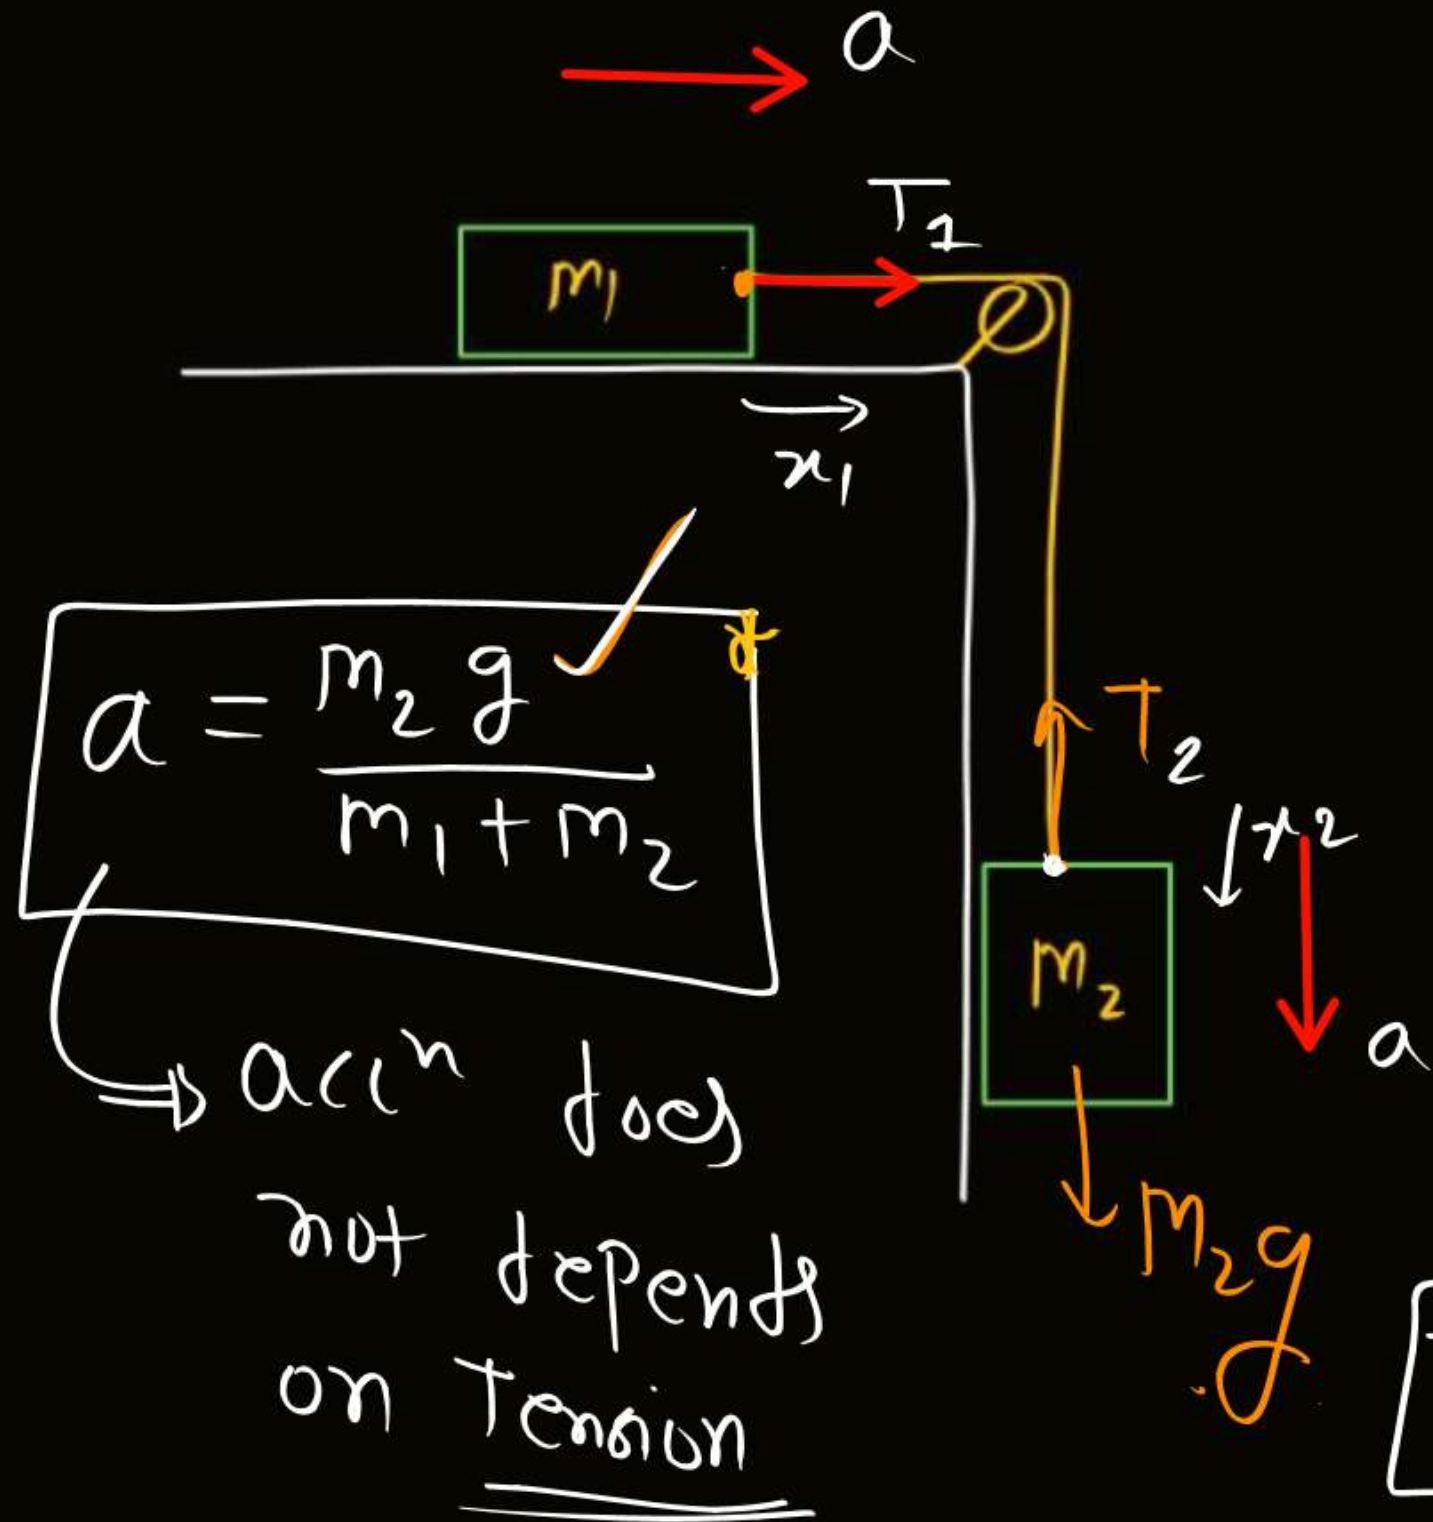 a
T1
m1
x1
a = m2 g / m1 + m2
T2
x2
m2
a
accn does
not depends
on Tension
m2g